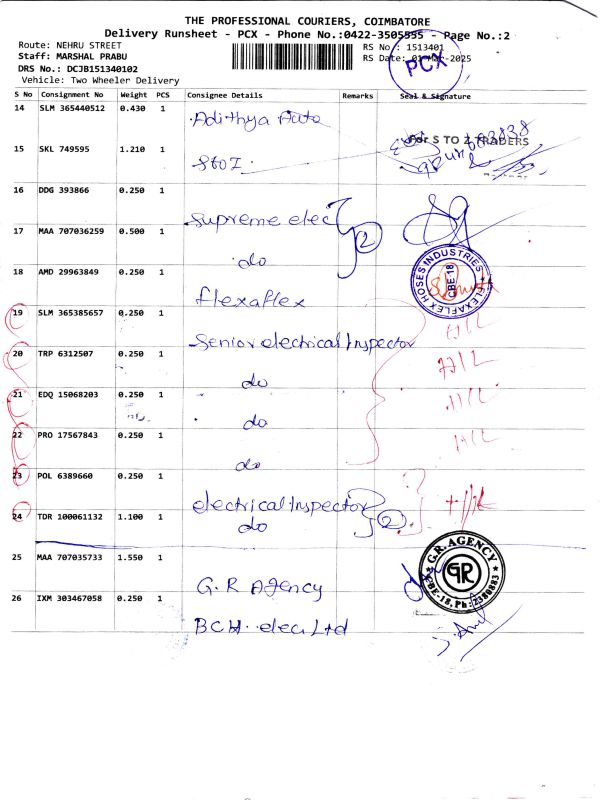 THE PROFESSIONAL COURIERS, COIMBATORE
Delivery Runsheet - PCX - Phone No.:0422-3505555 - Page No.:2
Route: NEHRU STREET
RS No : 1513401
Staff: MARSHAL PRABU
RS Date: 01-Mar-2025
PCX
DRS No.: DCJB151340102
Vehicle: Two Wheeler Delivery
S No Consignment No Weight PCS Consignee Details Remarks Seal & Signature
14 SLM 365440512 0.430 1 Adithya Auto
15 SKL 749595 1.210 1 StoZ For S TO Z TRADERS
16 DDG 393866 0.250 1 Supreme elec
17 MAA 707036259 0.500 1 do 2
18 AMD 29963849 0.250 1 flexaflex FLEXAFLEX HOSES INDUSTRIES CBE 18
19 SLM 365385657 0.250 1 Senior electrical Inspector
20 TRP 6312507 0.250 1 do
21 EDQ 15068203 0.250 1 do
22 PRO 17567843 0.250 1 do
23 POL 6389660 0.250 1 electrical Inspector
24 TDR 100061132 1.100 1 do 2
25 MAA 707035733 1.550 1 G.R Agency G.R. AGENCY GR CBE-18, Ph: 2380883
26 IXM 303467058 0.250 1 BCH. elec. Ltd